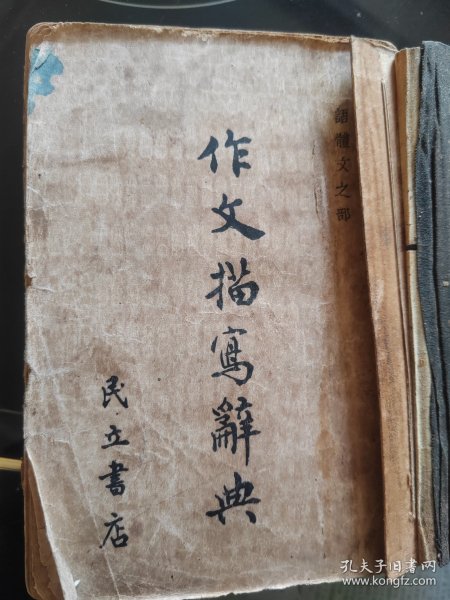 語體文之部
作文描寫辭典
民立書店
孔夫子旧书网
www.kongfz.com